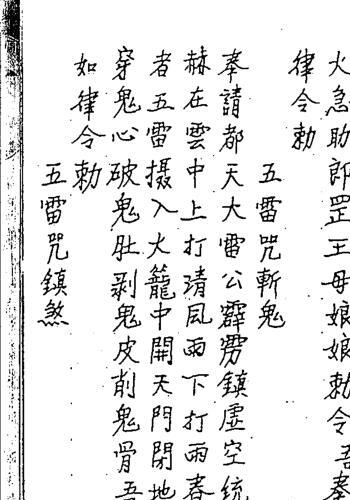 火急助郎罡王母娘娘勅令吾奉
律令勅
五雷咒斬鬼
奉請都天大雷公霹靂鎮虛空統
赫在雲中上打清風雨下打雨春
者五雷摄入火籠中開天門閉地
穿鬼心破鬼肚剥鬼皮削鬼骨吾
如律令勅
五雷咒鎮煞